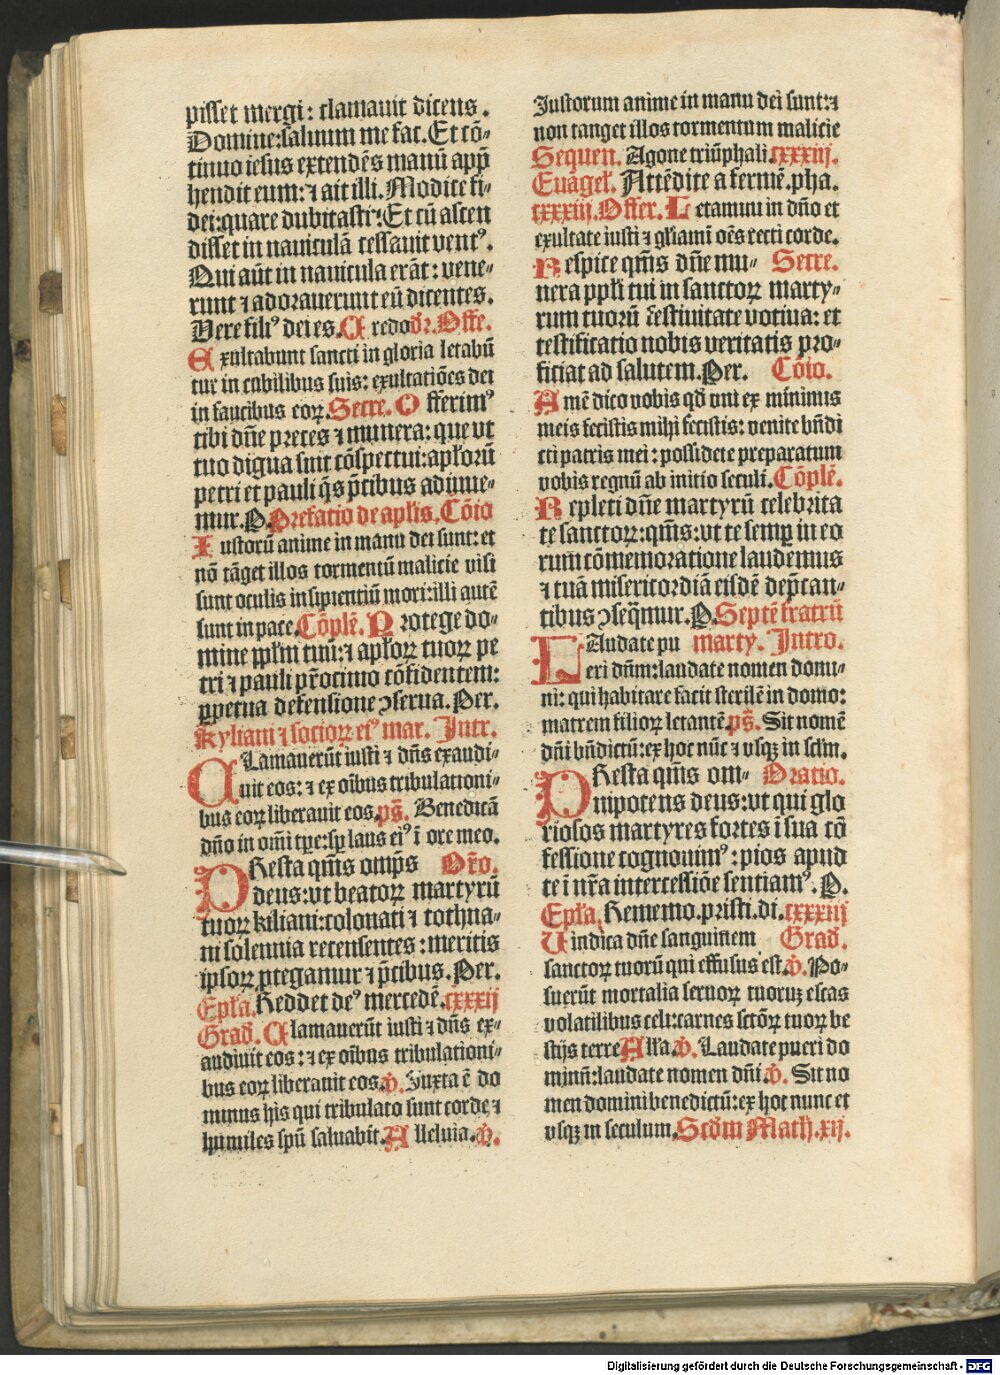 pisset mergi: clamauit dicens.
Domine: saluum me fac. Et cō-
tinuo iesus extendēs manū appᷓ
hendit eum: ⁊ ait illi. Modice fi-
dei: quare dubitasti: Et cū ascen
disset in nauiculā cessauit ventꝰ.
Qui aūt in nauicula erāt: vene-
runt ⁊ adorauerunt eū dicentes.
Vere filiꝰ dei es. Credo dr̄. Offe.
Exultabunt sancti in gloria letabū
tur in cubilibus suis: exultatiōes dei
in faucibus eoꝝ. Secre. Offerimꝰ
tibi dn̄e preces ⁊ munera: que vt
tuo digna sint cōspectui: apl̄orū
petri et pauli q̄s p̄cibus adiuue-
mur. P. Prefatio de apl̄is. Cōio
Iustorū anime in manu dei sunt: et
nō tāget illos tormentū malicie visi
sunt oculis insipientiū mori: illi autē
sunt in pace. Cōplē. Protege do-
mine ppl̄m tuū: ⁊ apl̄oꝝ tuoꝝ pe
tri ⁊ pauli pr̄ocinio cōfidentem:
ꝑpetua defensione ↄserua. Per.
Kyliani ⁊ socioꝝ eiꝰ mar. Intr.
Clamauerūt iusti ⁊ dn̄s exaudi-
uit eos: ⁊ ex oībus tribulationi-
bus eoꝝ liberauit eos. ps̄. Benedicā
dn̄o in om̄i tp̄e: sꝑ laus eiꝰ ī ore meo.
PResta qm̄s omp̄s Or̄o.
deus: vt beatoꝝ martyrū
tuoꝝ kiliani: colonati ⁊ tothna-
ni solennia recensentes: meritis
ipsoꝝ ꝓtegamur ⁊ p̄cibus. Per.
Epl̄a. Reddet deꝰ mercedē. cxxxij
Grad̄. Clamauerūt iusti ⁊ dn̄s ex-
audiuit eos: ⁊ ex oībus tribulationi-
bus eoꝝ liberauit eos. ℣. Juxta ē do
minus his qui tribulato sunt corde ⁊
humiles spū saluabit. Alleluia. ℣.
Justorum anime in manu dei sunt: ⁊
non tanget illos tormentum malicie
Sequen. Agone triūphali. cxxxiij.
Euāgel̄. Attēdite a fermē. pha.
cxxxiij. Offer. Letamini in dn̄o et
exultate iusti ⁊ gl̄iamī oēs recti corde.
Respice qm̄s dn̄e mu- Secre.
nera ppl̄i tui in sanctoꝝ marty-
rum tuorū festiuitate votiua: et
testificatio nobis veritatis pro-
ficiat ad salutem. Per. Cōio.
Amē dico vobis qd̄ vni ex minimis
meis fecistis mihi fecistis: venite bn̄di
cti patris mei: possidete preparatum
vobis regnū ab initio seculi. Cōplē.
Repleti dn̄e martyrū celebrita
te sanctoꝝ: qm̄s: vt te semꝑ in eo
rum cōmemoratione laudemus
⁊ tuā misericordiā eisdē dep̄can-
tibus ↄseq̄mur. P. Septē fratrū
LAudate pu marty. Intro.
eri dn̄m: laudate nomen domi-
ni: qui habitare facit sterilē in domo:
matrem filioꝝ letantē. ps̄. Sit nomē
dn̄i bn̄dictū: ex hoc nūc ⁊ vsqꝫ in scl̄m.
PResta qm̄s om- Oratio.
nipotens deus: vt qui glo
riosos martyres fortes ī sua cō
fessione cognouimꝰ: pios apud
te ī nr̄a intercessiōe sentiamꝰ. P.
Epl̄a. Rememo. pristi. di. cxxxiij
Uindica dn̄e sanguinem Grad̄.
sanctoꝝ tuorū qui effusus est. ℣. Po-
suerūt mortalia seruoꝝ tuoruꝫ escas
volatilibus celi: carnes sctōꝝ tuoꝝ be
stijs terre Alla. ℣. Laudate pueri do
minū: laudate nomen dn̄i. ℣. Sit no
men domini benedictū: ex hoc nunc et
vsqꝫ in seculum. Scd̄m Math. xij.
Digitalisierung gefördert durch die Deutsche Forschungsgemeinschaft - DFG